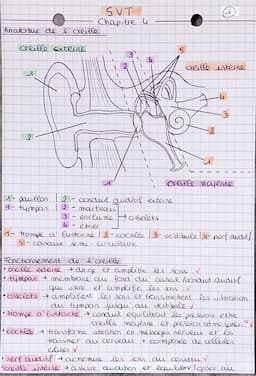 SVT
1
Chapitre 4
Anatomie de l'oreille
oreille externe
3 4
2
5
oreille interne
1
4
3
2
2
1
1
oreille moyenne
1- pavillon 2- conduit auditif externe
1- tympan 2- marteau
3- enclume → osselets
4- étrier
1- trompe d'eustache 2- cochlée 3- vestibule 4- nerf auditif
5- canaux semi circulaire
Fonctionnement de l'oreille
• oreille externe → dirige et amplifie les sons
• tympan → membrane au fond du canal conduit auditif
qui vibre et amplifie les sons
• osselets → amplifient les sons et transmettent les vibrations
du tympan jusqu'au vestibule
• trompe d'eustache → conduit équilibrant les pressions entre
oreille moyenne et pression atmosphérique
• cochlée → transforme vibration en messages nerveux et les
transmet au cerveau → composée de cellules
ciliées
• nerf auditif → achemine les sons au cerveau
• oreille interne → assure audition et équilibre grâce au